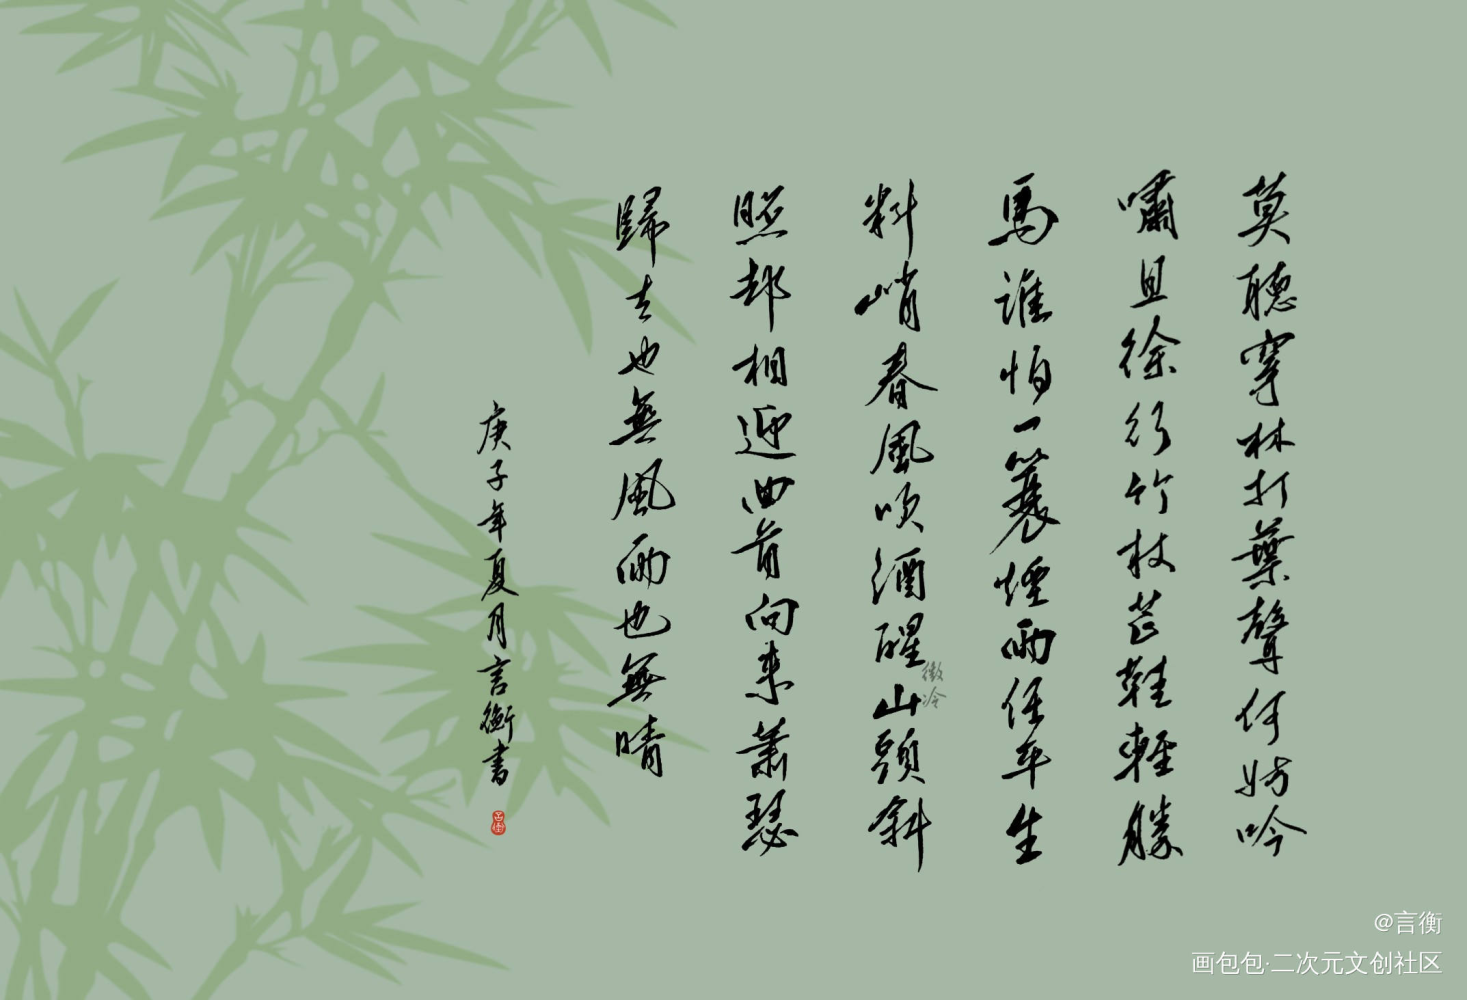 莫聽穿林打葉聲何妨吟
嘯且徐行竹杖芒鞋輕勝
馬誰怕一蓑煙雨任平生
料峭春風吹酒醒山頭斜
微冷
照却相迎回首向來蕭瑟
歸去也無風雨也無晴
庚子年夏月言衡書
言衡
@言衡
画包包·二次元文创社区